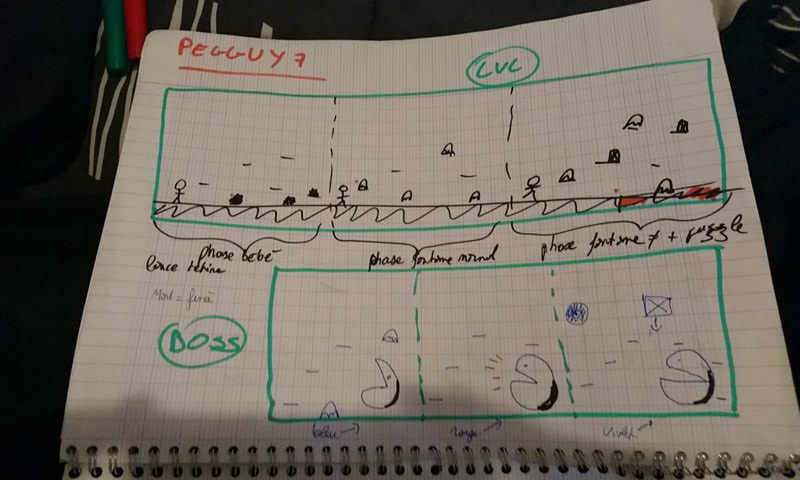 PEGGUY 7
LVL
phase bébé
lance tétine
phase fantome normal
phase fantome ≠ + puzzle
BOSS
bleu
rouge
violet